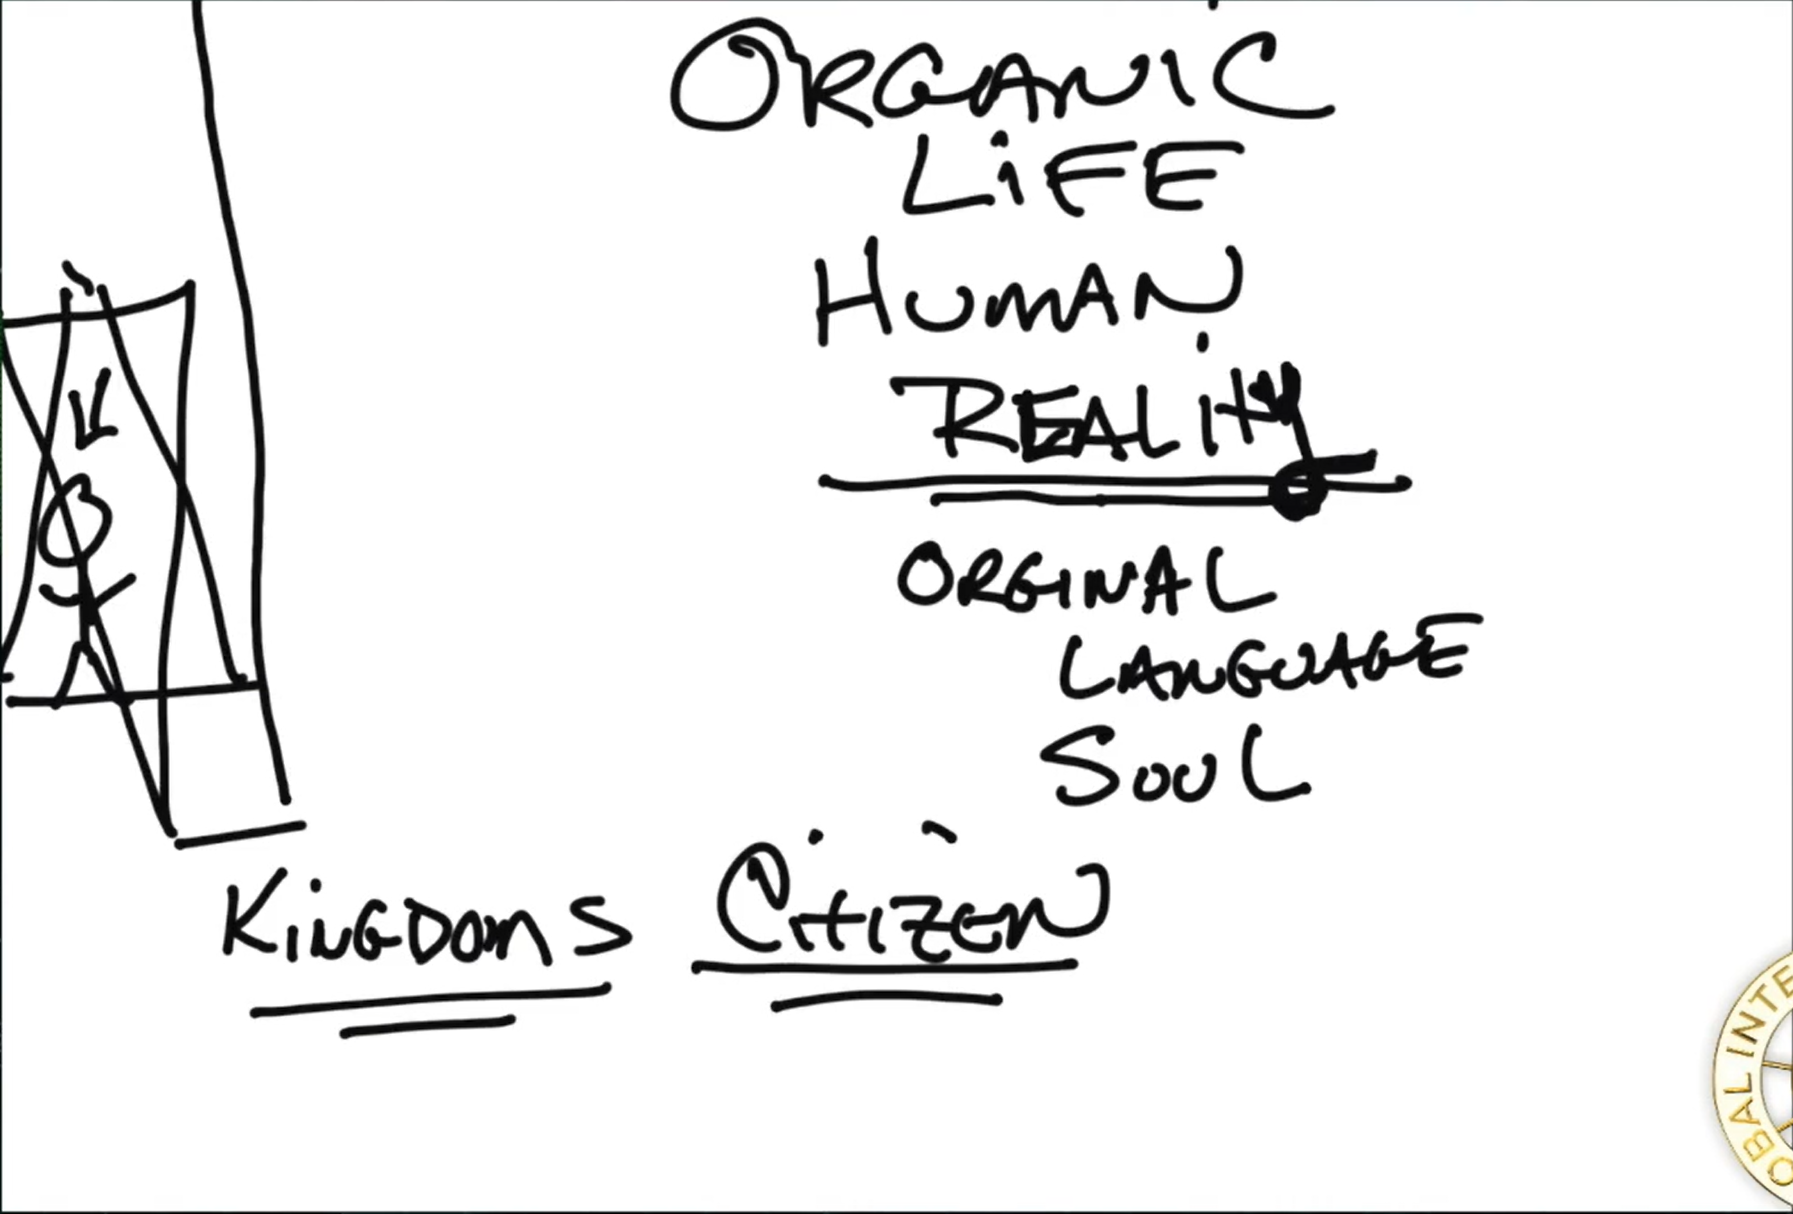 ORGANIC
LiFE
HUMAN
REALITY
ORGINAL
LANGUAGE
SOUL
KiNGDOMS CiTIZEN
OBAL INTE